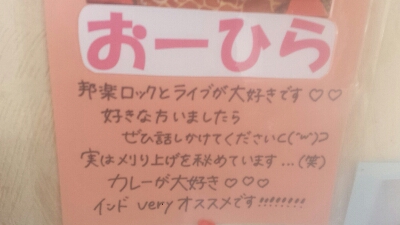 おーひら
邦楽ロックとライブが大好きです♡♡
好きな方いましたら
ぜひ話しかけてくださいC(´w`)⊃
実はメリり上げを秘めています…(笑)
カレーが大好き♡♡♡
インド veryオススメです!!!!!!!!!